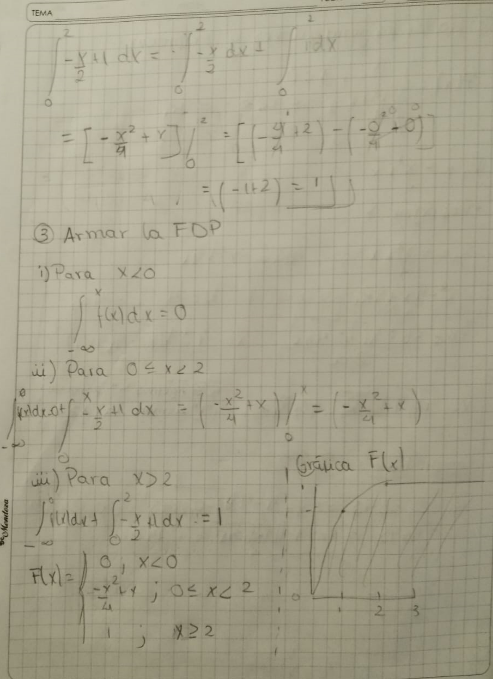 TEMA
∫₀² -x/2 + 1 dx = ∫₀² -x/2 dx + ∫₀² 1 dx
= [-x²/4 + x] /₀² = [(-4/4 + 2) - (-0²/4 + 0)]
= (-1+2) = 1
③ Armar la FDP
i) Para x<0
∫₋∞ˣ f(x)dx = 0
ii) Para 0 ≤ x < 2
∫₋∞⁰ f(x)dx=0 + ∫₀ˣ -x/2 + 1 dx = (-x²/4 + x) /₀ˣ = (-x²/4 + x)
iii) Para x>2
∫₋∞⁰ f(x)dx + ∫₀² -x/2 + 1 dx = 1
Gráfica F(x)
F(x) = { 0 , x<0
-x²/4 + x ; 0 ≤ x < 2
1 ; x ≥ 2
1
0
2 3